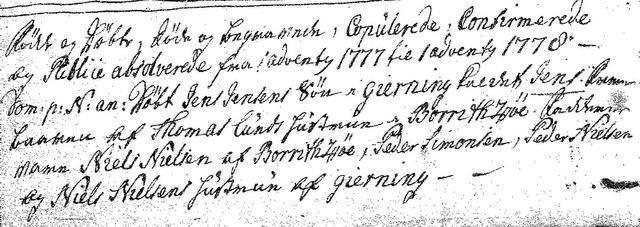 Fødte og Døbte, Døde og begravende, Copulerede, Confirmerede
og Publice absolverede fra 1 adventy 1777 til 1 adventy 1778 –
Dom: p: N: an: Døbt Jens Jensens Søn i gierning kaldet Jens
baaren af Thomas Lunds Hustrue i Borrithsøe,
mænd Niels Nielsen af Borrithsøe, Peder Simonsen, Peder Nielsen
og Niels Nielsens hustrue af gierning –